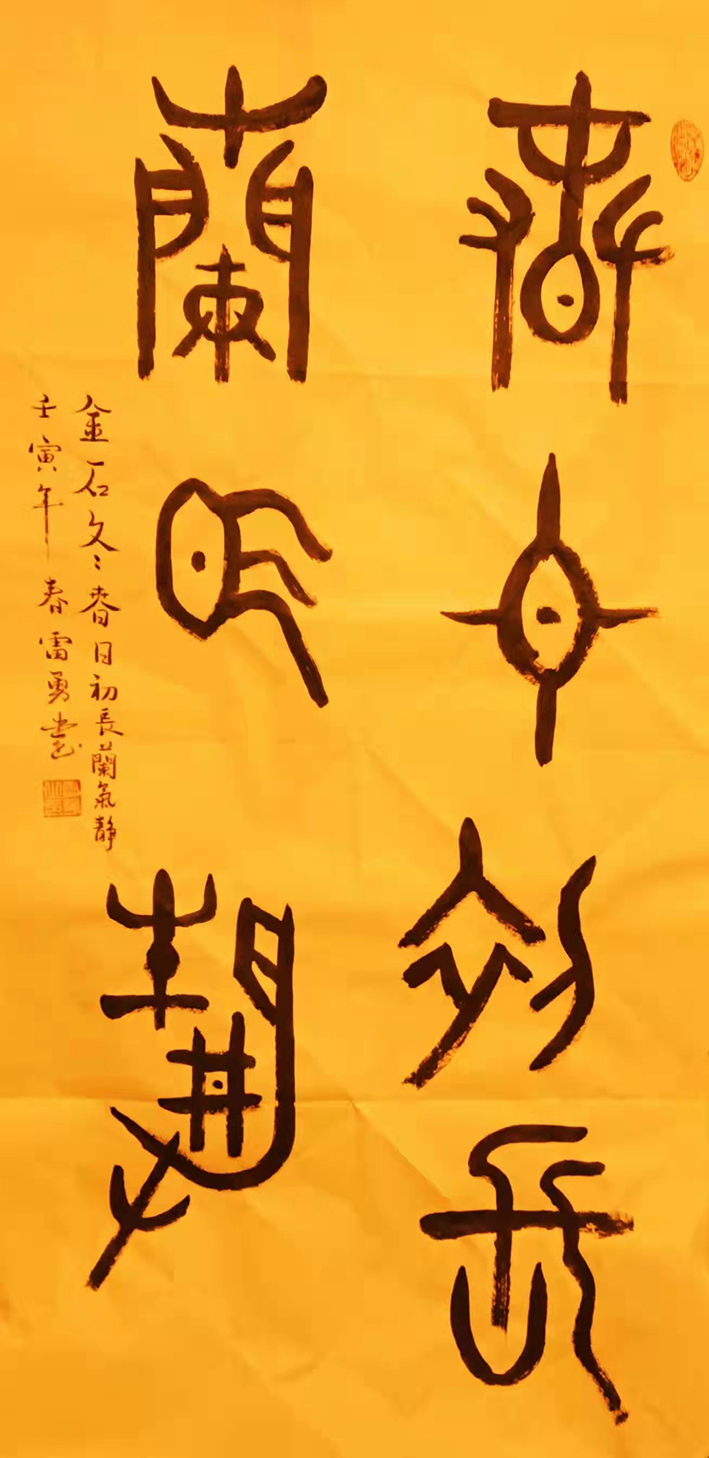 春日初長
蘭氣靜
金石文：春日初長蘭氣靜
壬寅年春雷勇書